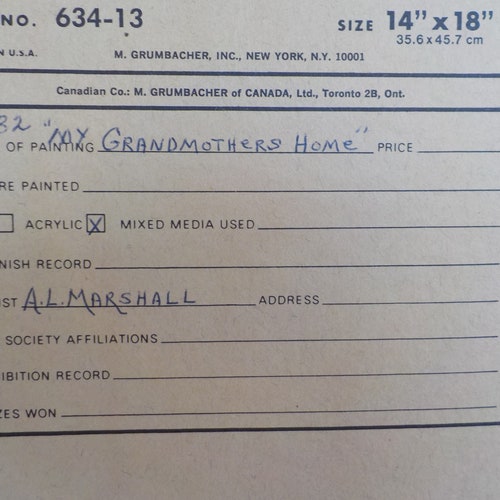 NO. 634-13 SIZE 14” x 18”
35.6 x 45.7 cm
N U.S.A. M. GRUMBACHER, INC., NEW YORK, N.Y. 10001
Canadian Co.: M. GRUMBACHER of CANADA, Ltd., Toronto 2B, Ont.
32 "MY GRANDMOTHERS HOME"
OF PAINTING PRICE
RE PAINTED
ACRYLIC X MIXED MEDIA USED
NISH RECORD
ST A.L. MARSHALL ADDRESS
SOCIETY AFFILIATIONS
IBITION RECORD
ZES WON